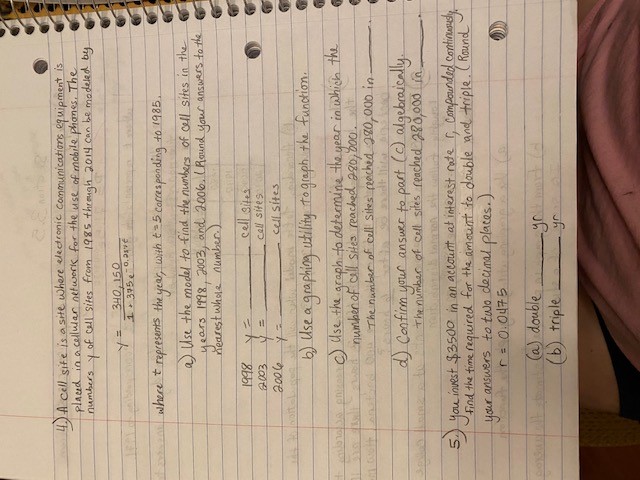 4.) A cell site is a site where electronic communications equipment is
placed in a cellular network for the use of mobile phones. The
numbers y of cell sites from 1985 through 2014 can be modeled by
y = 340,150
1 + 375e^-0.247t
where t represents the year, with t=5 corresponding to 1985.
a) Use the model to find the numbers of cell sites in the
years 1998, 2003, and 2006. (Round your answers to the
nearest whole number)
1998 y = ____ cell sites
2003 y = ____ cell sites
2006 y = ____ cell sites
b) Use a graphing utility to graph the function.
c) Use the graph to determine the year in which the
number of cell sites reached 280,000.
The number of cell sites reached 280,000 in ____.
d) Confirm your answer to part (c) algebraically.
The number of cell sites reached 280,000 in ____.
5.) you invest $3500 in an account at interest rate r, compounded continuously.
Find the time required for the amount to double and triple. (Round
your answers to two decimal places.)
r = 0.0475
(a) double ____ yr
(b) triple ____ yr